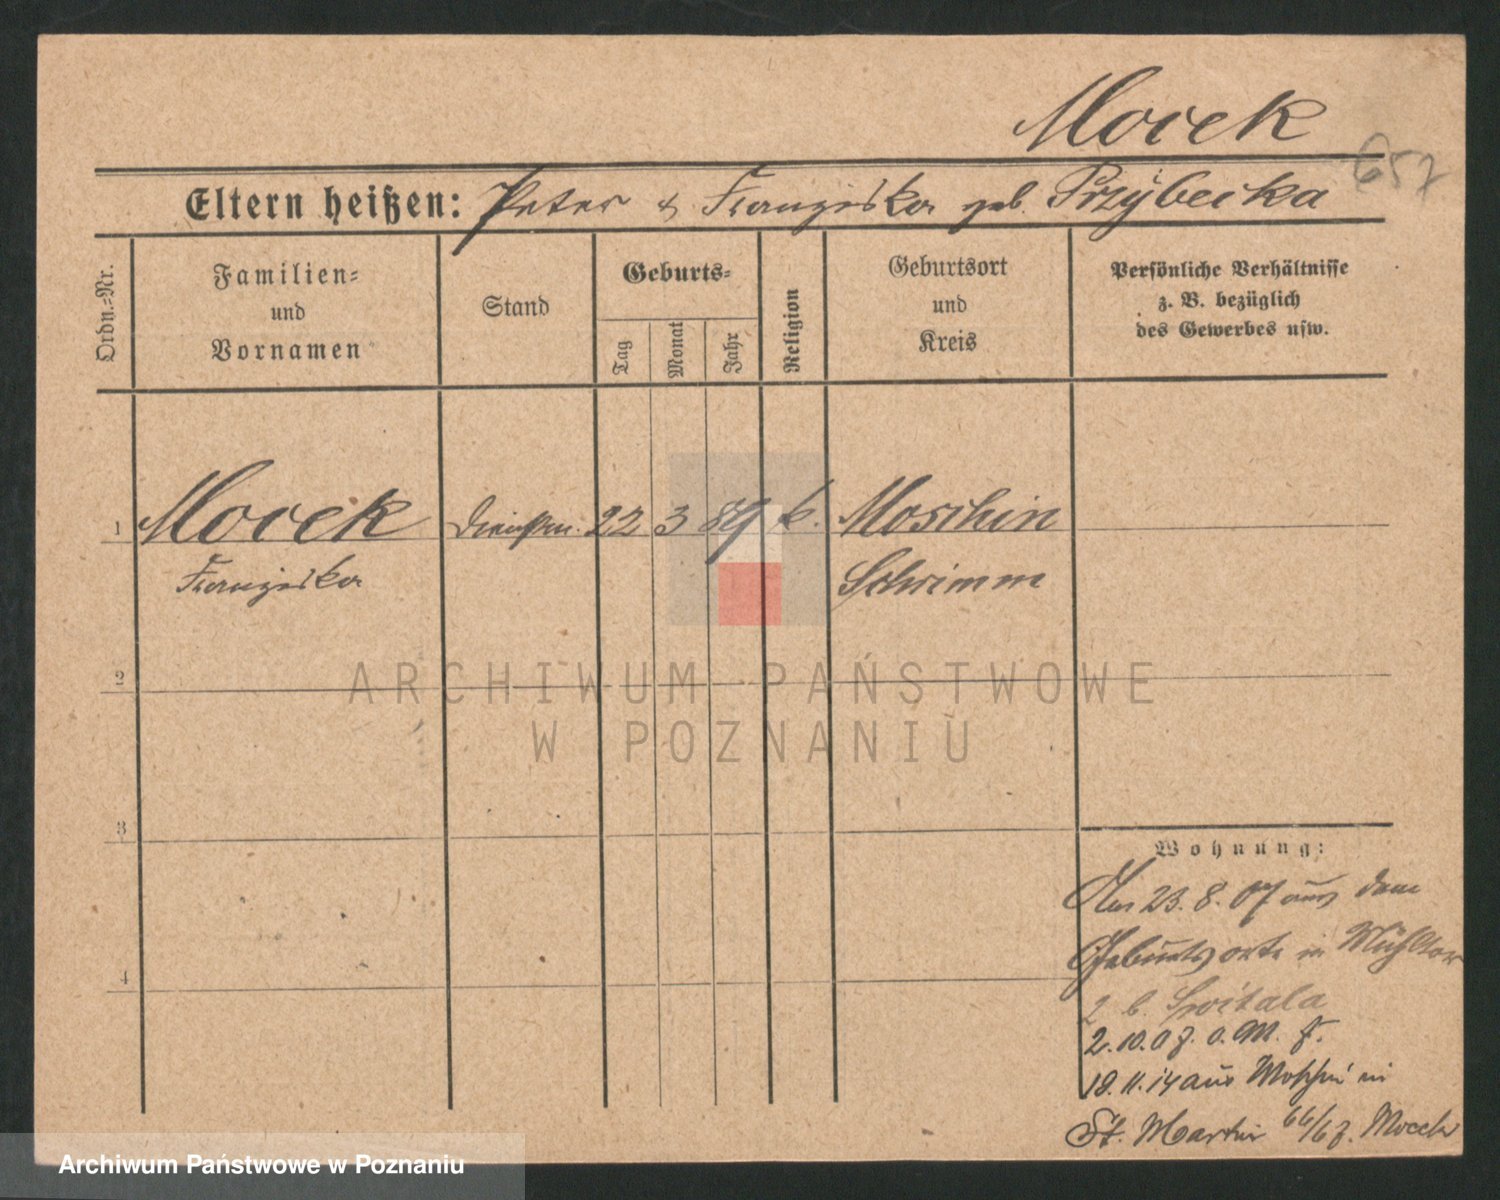 Mocek
657
Eltern heißen: Peter & Franziska geb. Przybecka
Ordn.-Nr.
Familien-
und
Vornamen
Stand
Geburts-
Tag
Monat
Jahr
Religion
Geburtsort
und
Kreis
Persönliche Verhältnisse
z. B. bezüglich
des Gewerbes usw.
1 Mocek Dienstm. 22 3 89 k. Moschin
Franziska Schrimm
2
ARCHIWUM PAŃSTWOWE
W POZNANIU
3
Wohnung:
23.8.07 aus dem
4
Geburtsorte in Mühltor
2 b. Switala
2.10.07. o.M. F.
18.11.14 aus Moschin in
St. Martin 66/67. Mocek
Archiwum Państwowe w Poznaniu